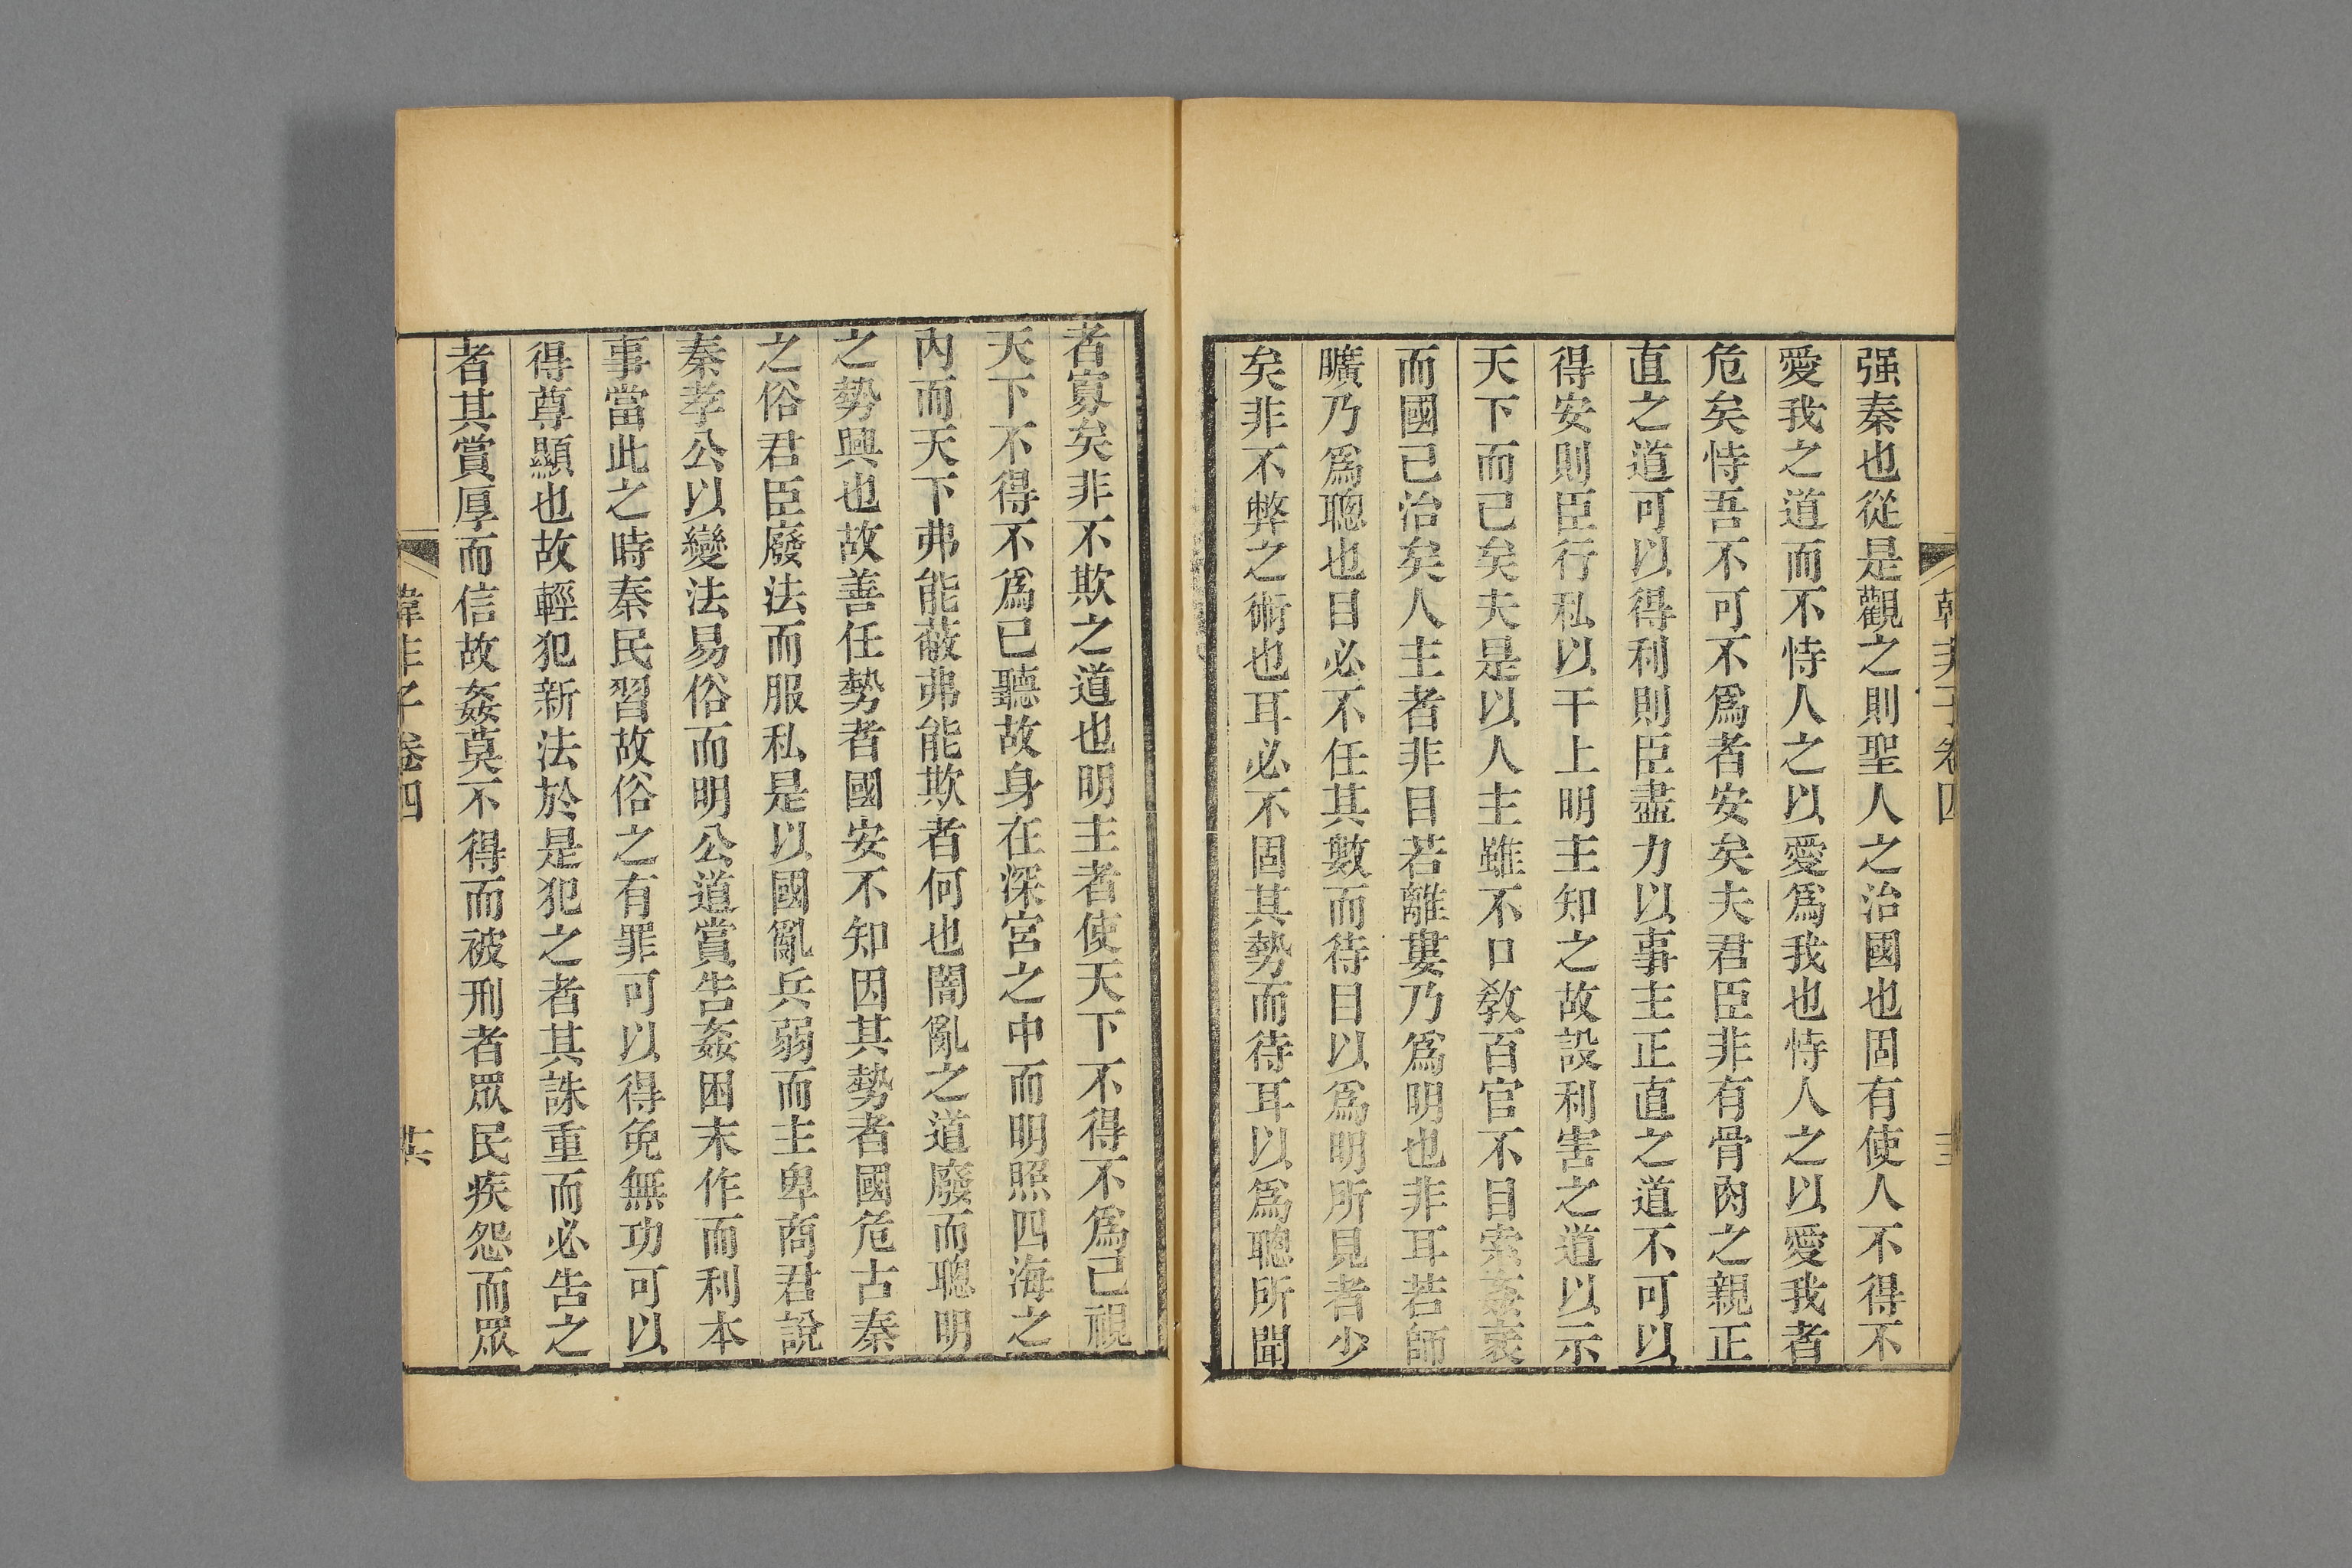 韓非子卷四
强秦也從是觀之則聖人之治國也固有使人不得不
愛我之道而不恃人之以愛爲我也恃人之以愛我者
危矣恃吾不可不爲者安矣夫君臣非有骨肉之親正
直之道可以得利則臣盡力以事主正直之道不可以
得安則臣行私以干上明主知之故設利害之道以示
天下而已矣夫是以人主雖不口敎百官不目索姦衺
而國已治矣人主者非目若離婁乃爲明也非耳若師
曠乃爲聰也目必不任其數而待目以爲明所見者少
矣非不弊之術也耳必不固其勢而待耳以爲聰所聞
者寡矣非不欺之道也明主者使天下不得不爲己視
天下不得不爲己聽故身在深宮之中而明照四海之
內而天下弗能蔽弗能欺者何也闇亂之道廢而聰明
之勢興也故善任勢者國安不知因其勢者國危古秦
之俗君臣廢法而服私是以國亂兵弱而主卑商君說
秦孝公以變法易俗而明公道賞告姦困末作而利本
事當此之時秦民習故俗之有罪可以得免無功可以
得尊顯也故輕犯新法於是犯之者其誅重而必告之
者其賞厚而信故姦莫不得而被刑者眾民疾怨而眾
韓非子卷四